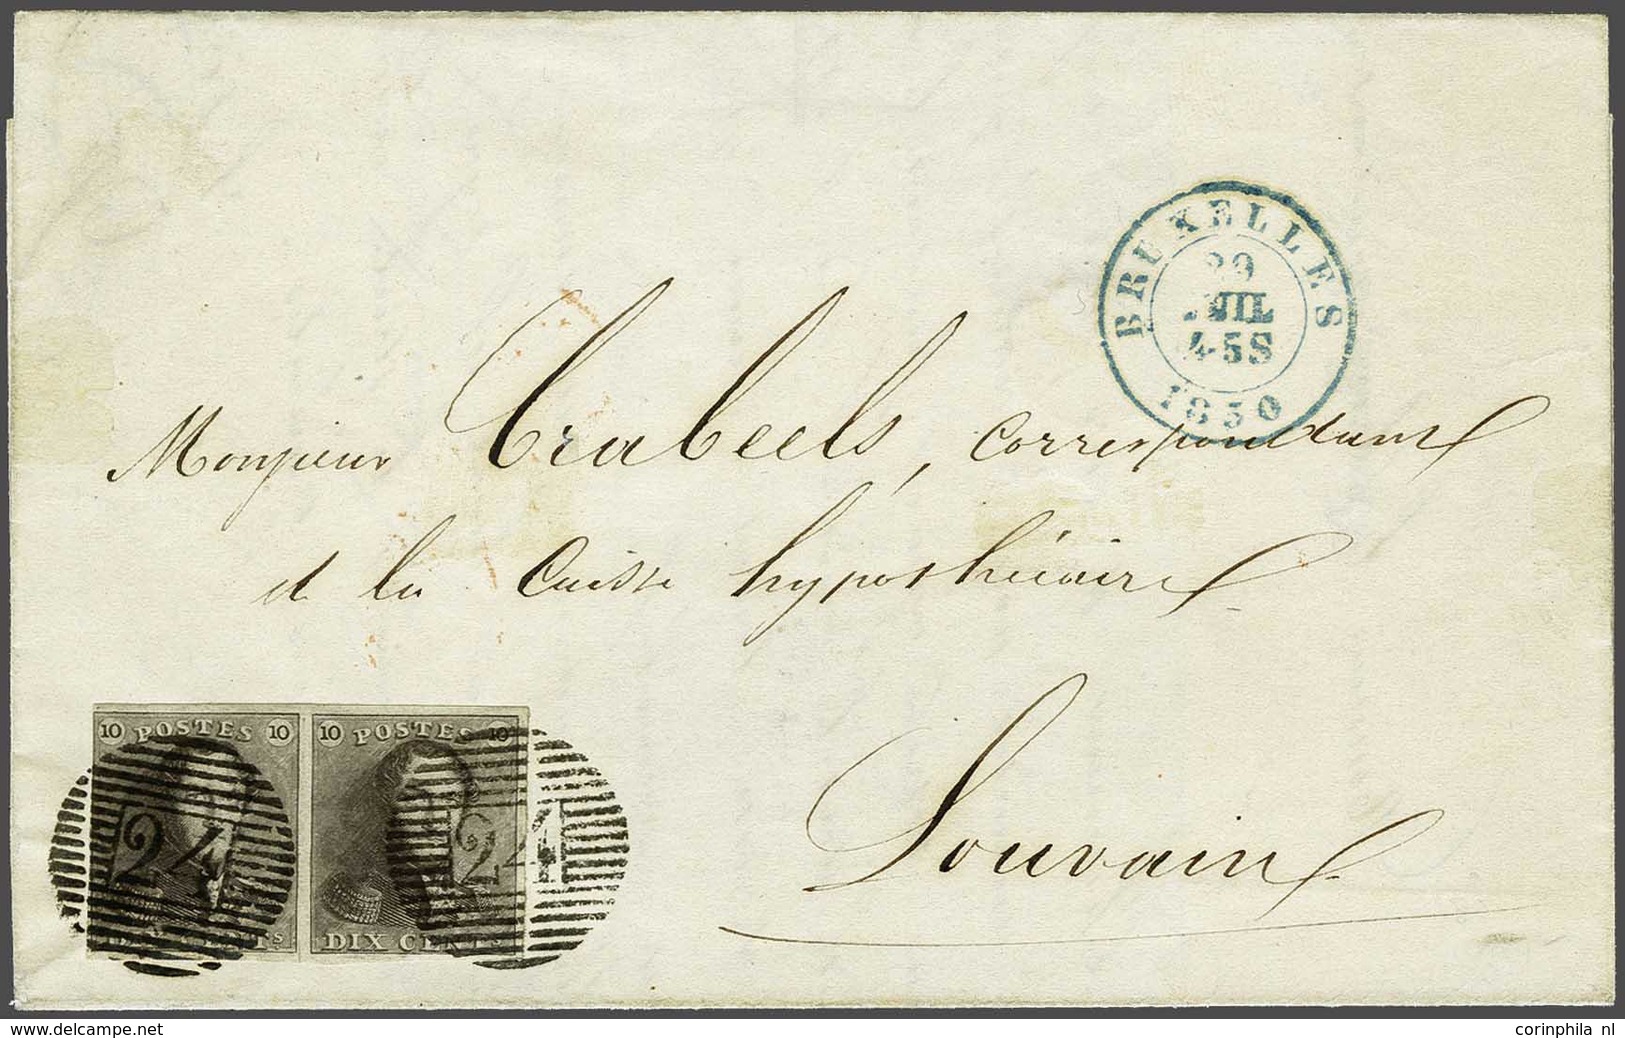 BRUXELLES
29
JUIL
4-5S
1850
Monsieur Trabeels, Correspondant
de la Caisse hypothécaire
Louvain
10 POSTES 10
10 POSTES 10
24
24
DIX CENTS
DIX CENTS
www.delcampe.net
corinphila nl